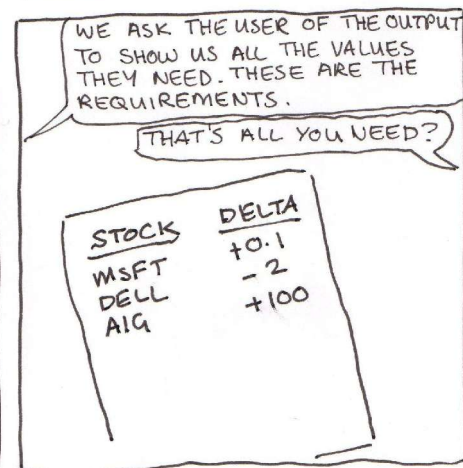 WE ASK THE USER OF THE OUTPUT
TO SHOW US ALL THE VALUES
THEY NEED. THESE ARE THE
REQUIREMENTS.
THAT'S ALL YOU NEED?
STOCK DELTA
MSFT +0.1
DELL -2
AIG +100